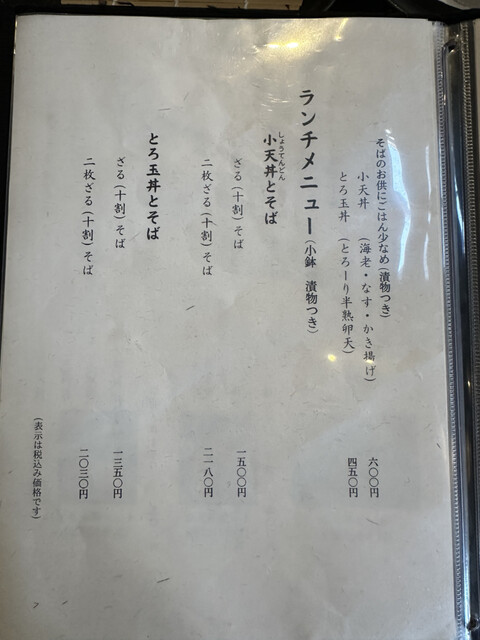 そばのお供にごはん少なめ(漬物つき)
小天丼 (海老・なす・かき揚げ) 六〇〇円
とろ玉丼 (とろーり半熟卵天) 四五〇円
ランチメニュー(小鉢 漬物つき)
小天丼とそば
しょうてんどん
ざる(十割)そば 一五〇〇円
二枚ざる(十割)そば 二一八〇円
とろ玉丼とそば
ざる(十割)そば 一三五〇円
二枚ざる(十割)そば 二〇三〇円
(表示は税込み価格です)